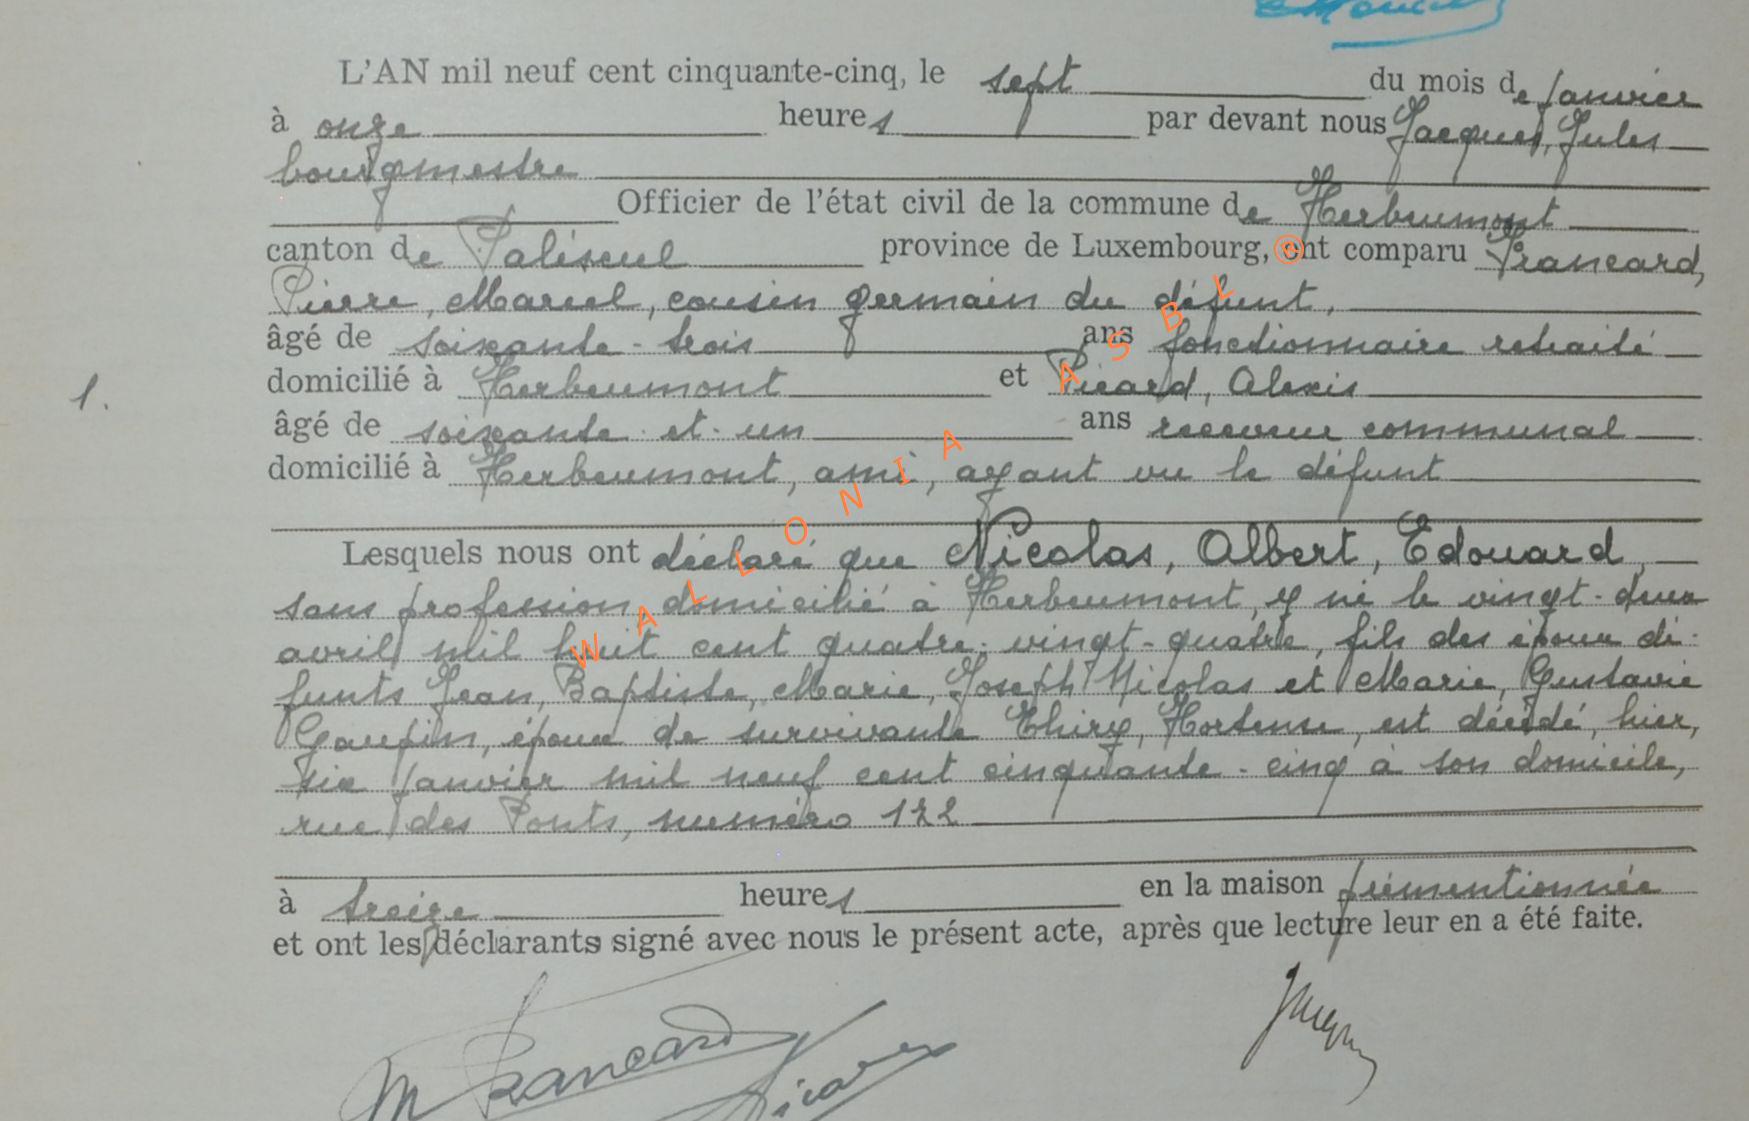 L'AN mil neuf cent cinquante-cinq, le sept du mois de janvier
à onze heures par devant nous Jacques, Jules
bourgmestre
Officier de l'état civil de la commune de Herbeumont
canton de Paliseul province de Luxembourg, ont comparu Prancard,
Pierre, Marcel, cousin germain du défunt,
âgé de soixante-trois ans fonctionnaire retraité
1. domicilié à Herbeumont et Picard, Alexis
âgé de soixante et un ans receveur communal
domicilié à Herbeumont, ami, ayant vu le défunt
Lesquels nous ont déclaré que Nicolas, Albert, Edouard,
sans profession domicilié à Herbeumont, y né le vingt-deux
avril mil huit cent quatre-vingt-quatre, fils des époux dé-
funts Jean, Baptiste, Marie, Joseph Nicolas et Marie, Gustavie
Goupin, époux de survivante Thiry, Hortense, est décédé, hier,
six janvier mil neuf cent cinquante-cinq à son domicile,
rue des Ponts, numéro 122
à treize heures en la maison prémentionnée
et ont les déclarants signé avec nous le présent acte, après que lecture leur en a été faite.
M Prancard
Picard
© WALLONIA ASBL